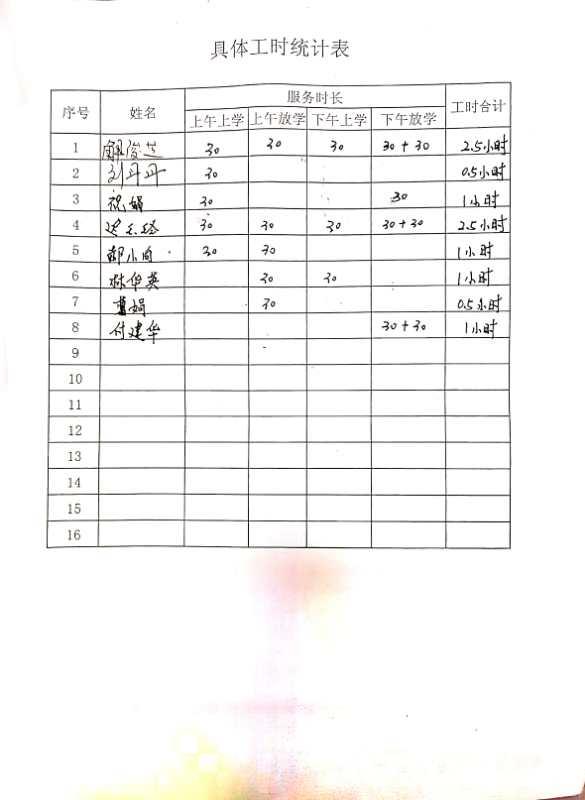 具体工时统计表
序号 姓名 服务时长 工时合计
上午上学 上午放学 下午上学 下午放学
1 30 30 30 30+30 2.5小时
2 刘丹丹 30 0.5小时
3 祝娟 30 30 1小时
4 30 30 30 30+30 2.5小时
5 30 30 1小时
6 林华英 30 30 1小时
7 曹娟 30 0.5小时
8 付建华 30+30 1小时
9
10
11
12
13
14
15
16